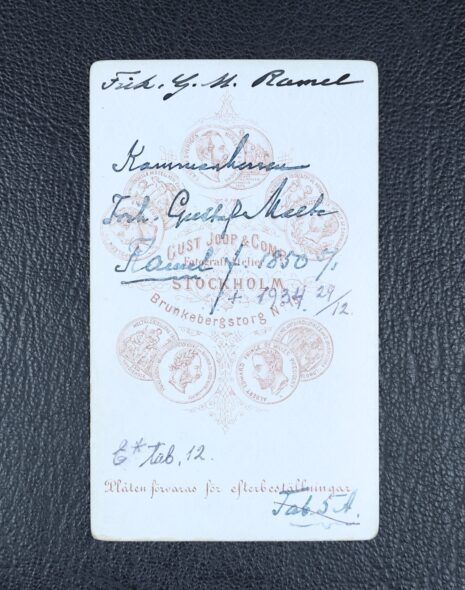 Frih. G. M. Ramel
Kammarherren
Frih. Gustaf Malte
GUST JOOP & COMP.
Ramel f 1850 5/1
Fotografi Atelier
STOCKHOLM
+ 1934 29/12.
Brunkebergstorg N:o
E* tab. 12.
Plåten förvaras för efterbeställningar
Tab. 5 A.